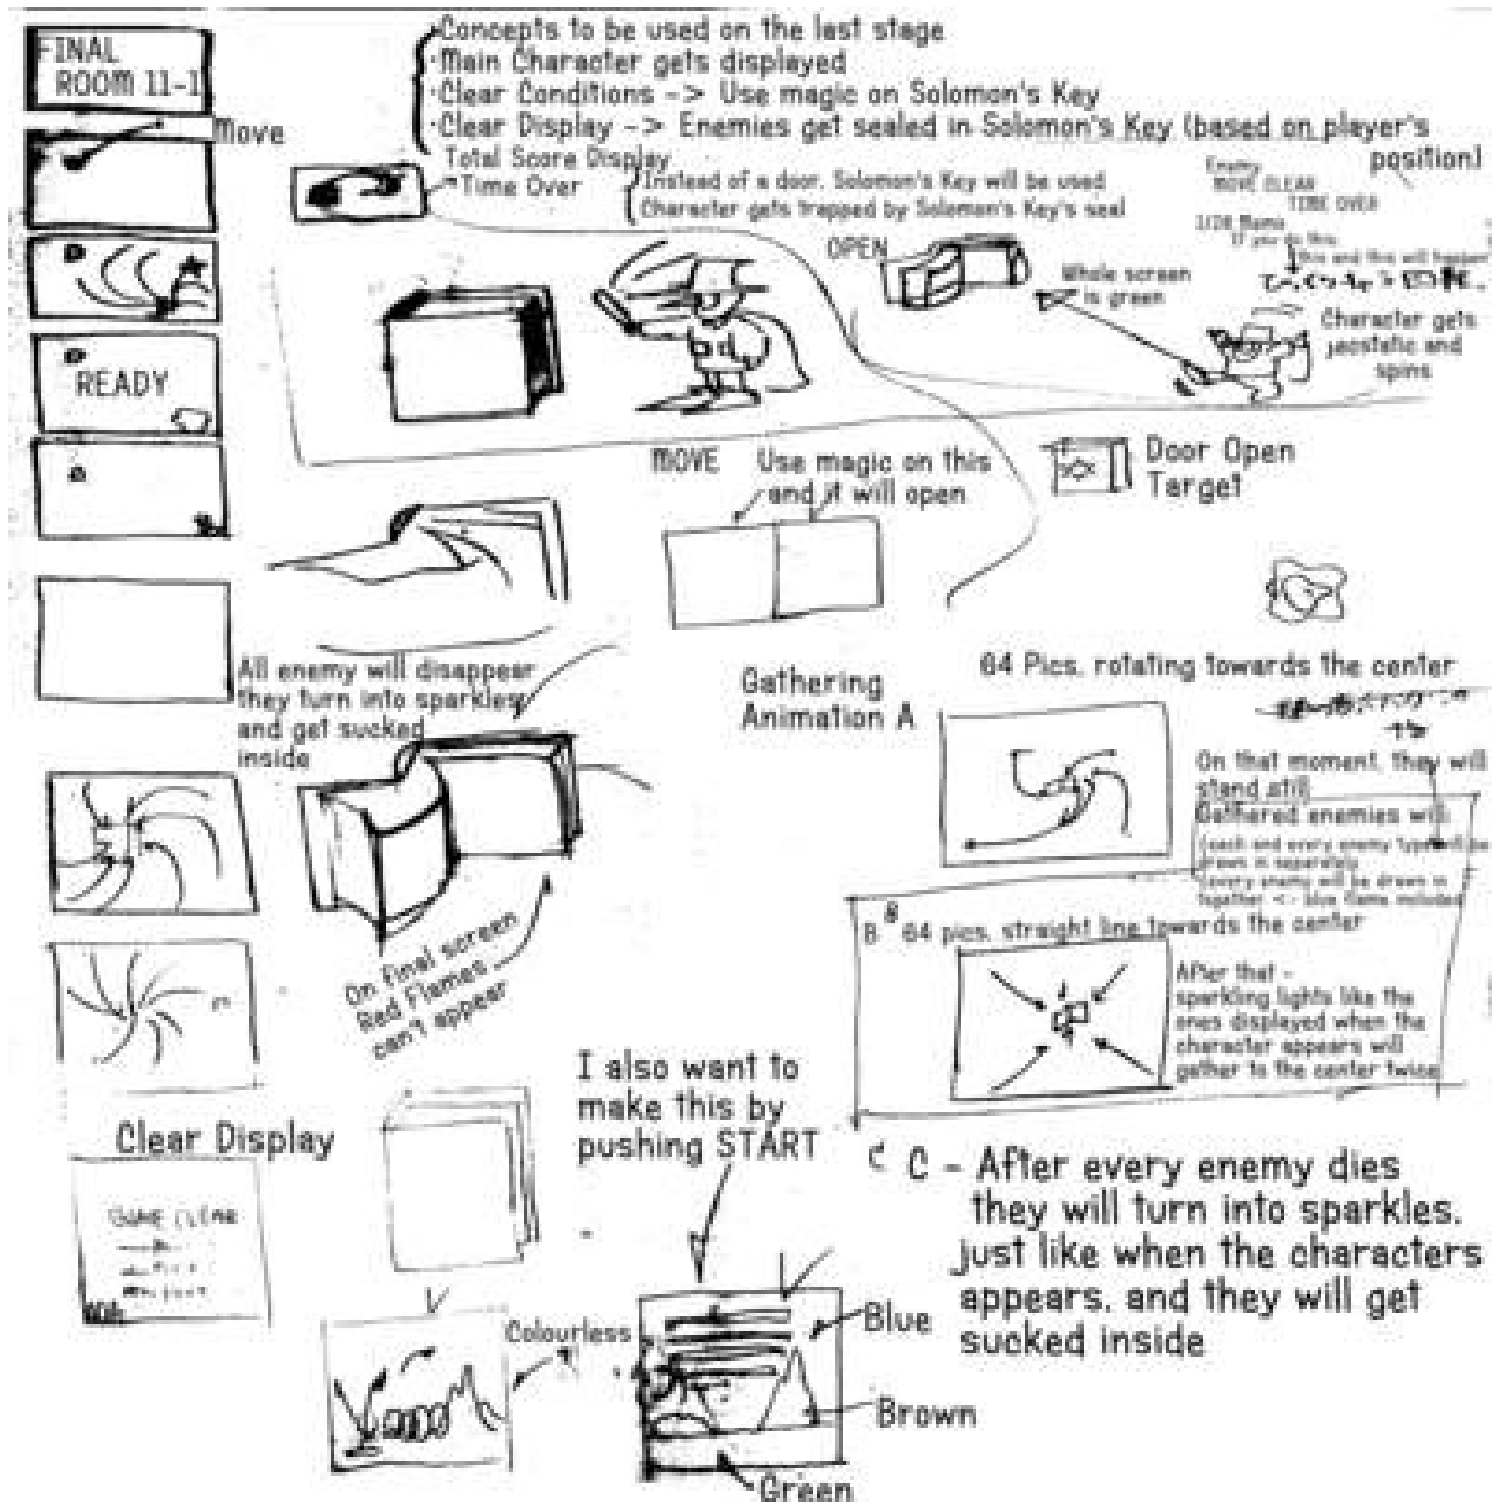 FINAL
ROOM 11-1
Concepts to be used on the last stage
·Main Character gets displayed
·Clear Conditions -> Use magic on Solomon's Key
·Clear Display -> Enemies get sealed in Solomon's Key (based on player's
position)
Move
Total Score Display
Time Over
Instead of a door, Solomon's Key will be used
Character gets trapped by Solomon's Key's seal
Enemy
MOVE CLEAR
TIME OVER
If you do this
this and this will happen
OPEN
Whole screen
is green
Character gets
and
spins
READY
MOVE
Use magic on this
and it will open
Door Open
Target
All enemy will disappear
they turn into sparkles
and get sucked
inside
Gathering
Animation A
64 Pics. rotating towards the center
On that moment, they will
stand still
Gathered enemies will
(each and every enemy type will be
drawn in separately
(every enemy will be drawn in
together <- blue flame included
B 64 pics. straight line towards the center
On final screen
Red Flames
can't appear
After that -
sparkling lights like the
ones displayed when the
character appears will
gather to the center twice
I also want to
make this by
pushing START
Clear Display
GAME CLEAR
C C - After every enemy dies
they will turn into sparkles.
just like when the characters
appears. and they will get
sucked inside
Colourless
Blue
Brown
Green